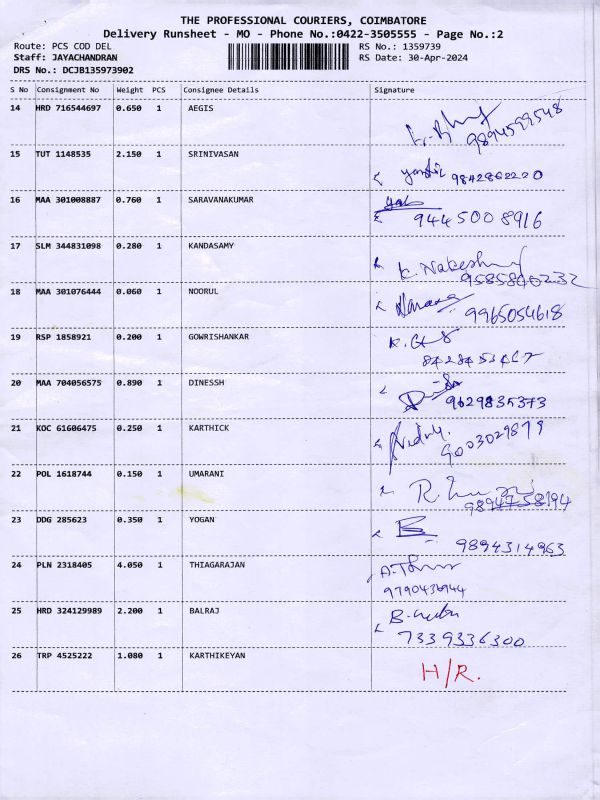 THE PROFESSIONAL COURIERS, COIMBATORE
Delivery Runsheet - MO - Phone No.:0422-3505555 - Page No.:2
Route: PCS COD DEL RS No.: 1359739
Staff: JAYACHANDRAN RS Date: 30-Apr-2024
DRS No.: DCJB135973902
S No Consignment No Weight PCS Consignee Details Signature
14 HRD 716544697 0.650 1 AEGIS
9894599548
15 TUT 1148535 2.150 1 SRINIVASAN
9842862220
16 MAA 301008887 0.760 1 SARAVANAKUMAR
9445008916
17 SLM 344831098 0.280 1 KANDASAMY
K.
18 MAA 301076444 0.060 1 NOORUL
9965054618
19 RSP 1858921 0.200 1 GOWRISHANKAR
20 MAA 704056575 0.890 1 DINESSH
9629835373
21 KOC 61606475 0.250 1 KARTHICK
9003029879
22 POL 1618744 0.150 1 UMARANI
R.
23 DDG 285623 0.350 1 YOGAN
9894314963
24 PLN 2318405 4.050 1 THIAGARAJAN
9790436944
25 HRD 324129989 2.200 1 BALRAJ
7339336300
26 TRP 4525222 1.080 1 KARTHIKEYAN H/R.